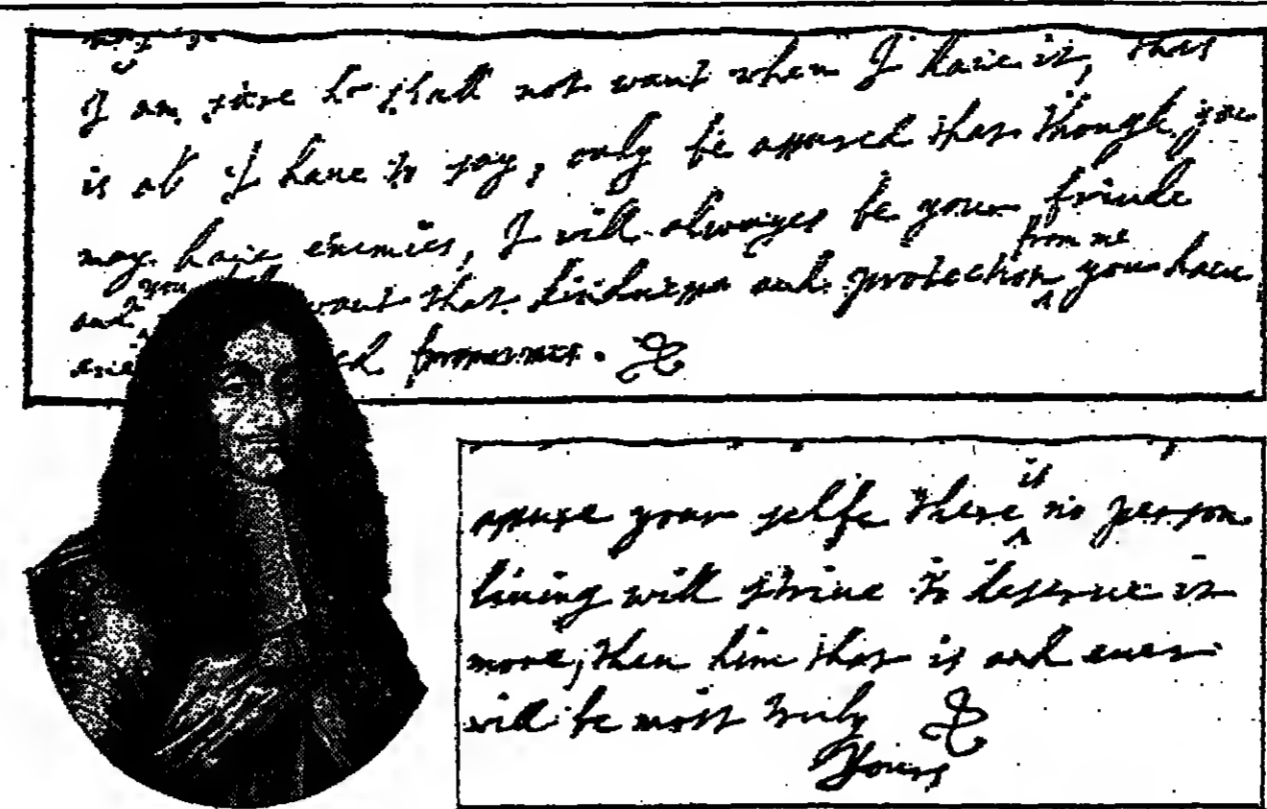 I am sure he shall not want when I haue it, this
is al I have to say, only be assured that though you
may haue enemies, I will alwayes be your friende
from me
and you want that kindness and protection you haue
from me.
is
assure your selfe there no person
liuing will striue to deserue it
more, then him that is and euer
will be most truly
Yours